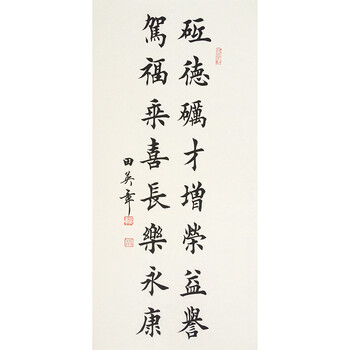 砥德礪才增榮益譽
駕福乘喜長樂永康
田英章